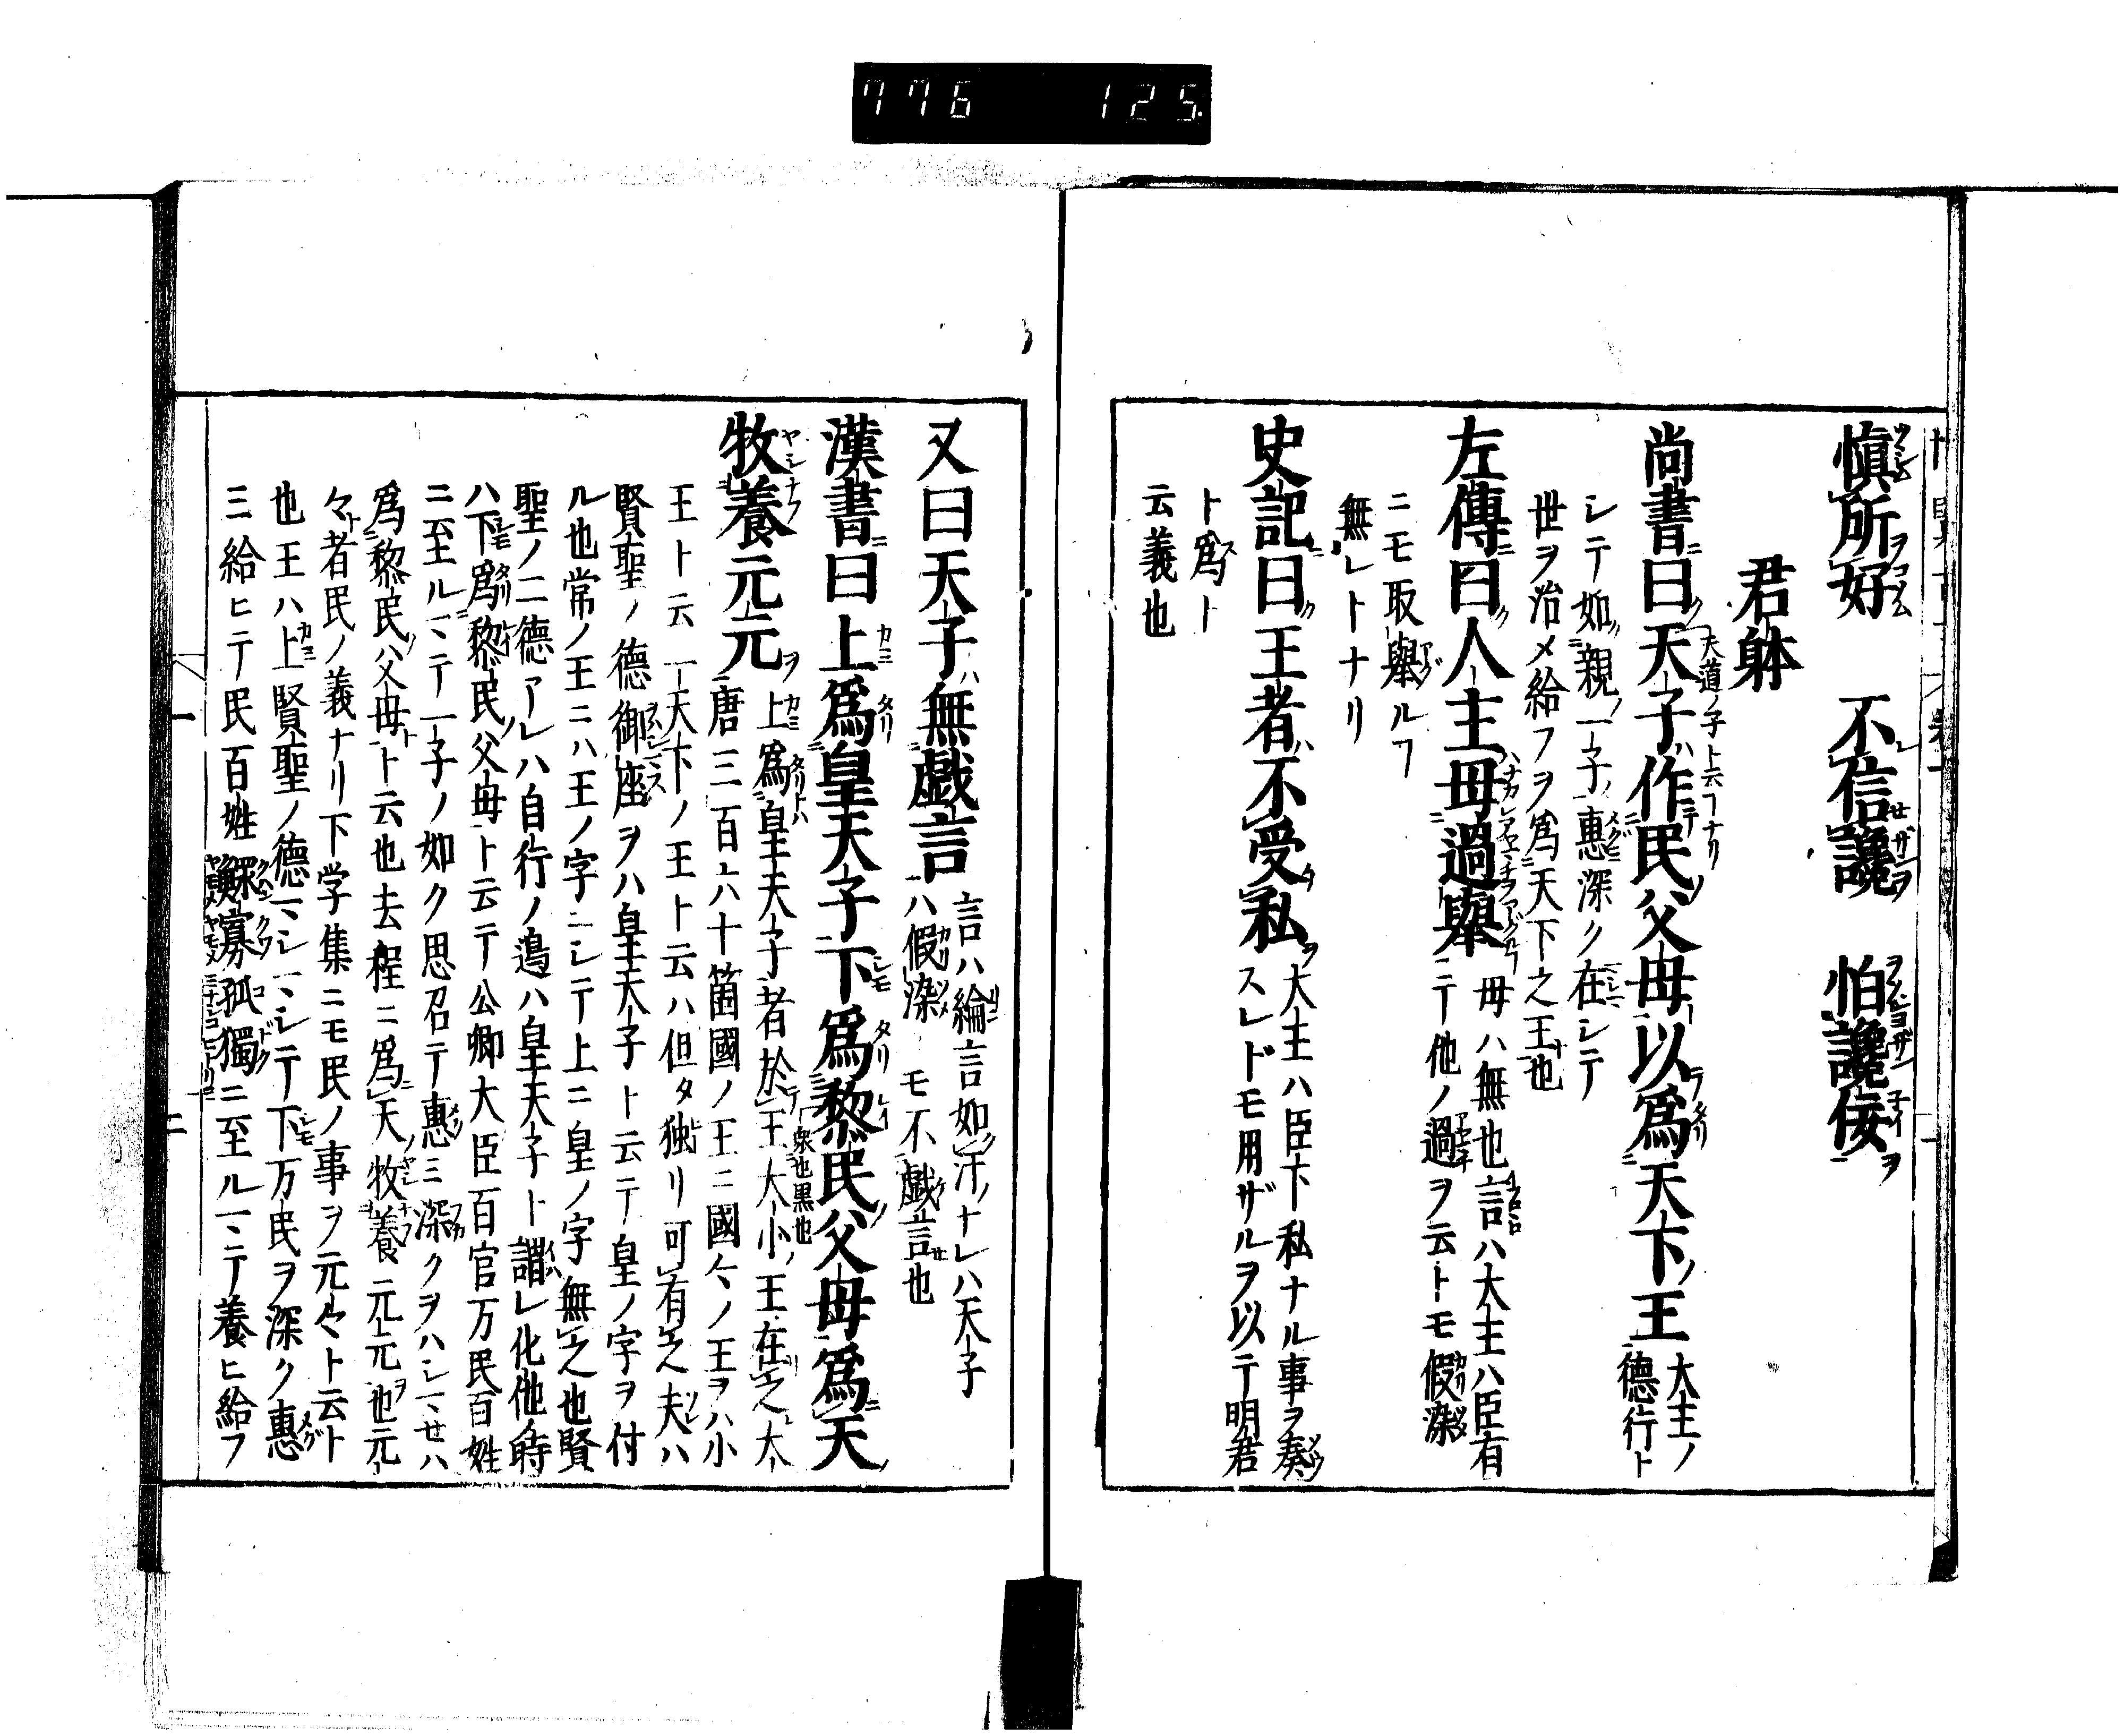 776 125
愼所好 不信讒 怕讒佞
君躰
尚書曰天子作民父母以爲天下王 大王ノ德行ト
天道ノ子ト云フナリ
シテ如親一子ノ惠深ク在シテ
世ヲ治メ給フヲ爲天下之王也
左傳曰人主毋過擧 毋ハ無也言ハ大主ハ臣有ニテ他ノ過ヲ云トモ假染
ニモ取擧ル
無レトナリ
史記曰王者不受私 大主ハ臣下私ナル事ヲ奏スレドモ用ザルヲ以テ明君
ト爲ト
云義也
又曰天子無戯言 言ハ綸言如汗ナレハ天子ハ假染モ不戯言也
漢書曰上爲皇天子下爲黎民父母爲天
衆也黒也
牧養元元 上爲皇天子者於王大小王在之大
唐三百六十箇國ノ王ニ國々ノ王ヲハ小
王ト云一天下ノ王ト云ハ但タ独リ可有之夫ハ
賢聖ノ德御座ヲハ皇天子ト云テ皇ノ字ヲ付
ル也常ノ王ニハ王ノ字ニシテ上ニ皇ノ字無之也賢
聖ノ二德アレハ自行ノ邉ハ皇天子ト謂レ化他ノ時
ハ下爲黎民父母ト云テ公卿大臣百官万民百姓
ニ至ルマテ一子ノ如ク思召テ惠ミ深クヲハシマセハ
爲黎民父母ト云也去程ニ爲天牧養元元也元
々者民ノ義ナリ下学集ニモ民ノ事ヲ元々ト云ト
也王ハ上賢聖ノ德マシマシテ下万民ヲ深ク惠
ミ給ヒテ民百姓鰥寡孤獨ニ至ルマテ養ヒ給フ